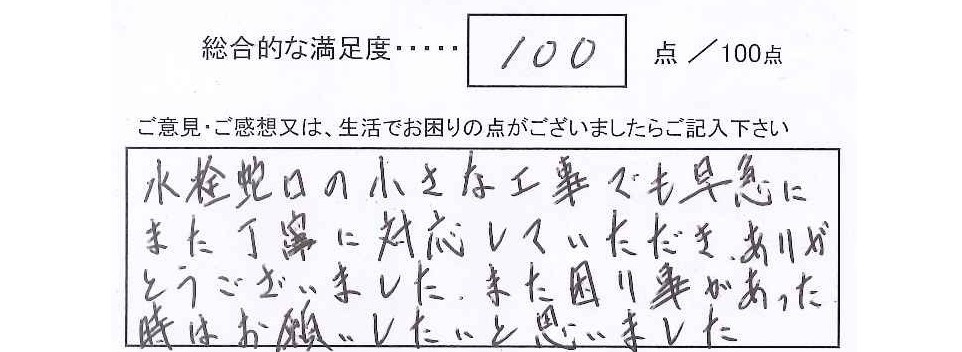 総合的な満足度・・・・・ 100 点 ／100点
ご意見・ご感想又は、生活でお困りの点がございましたらご記入下さい
水栓蛇口の小さな工事でも早急に
また丁寧に対応していただき、ありが
とうございました、また困り事があった
時はお願いしたいと思いました